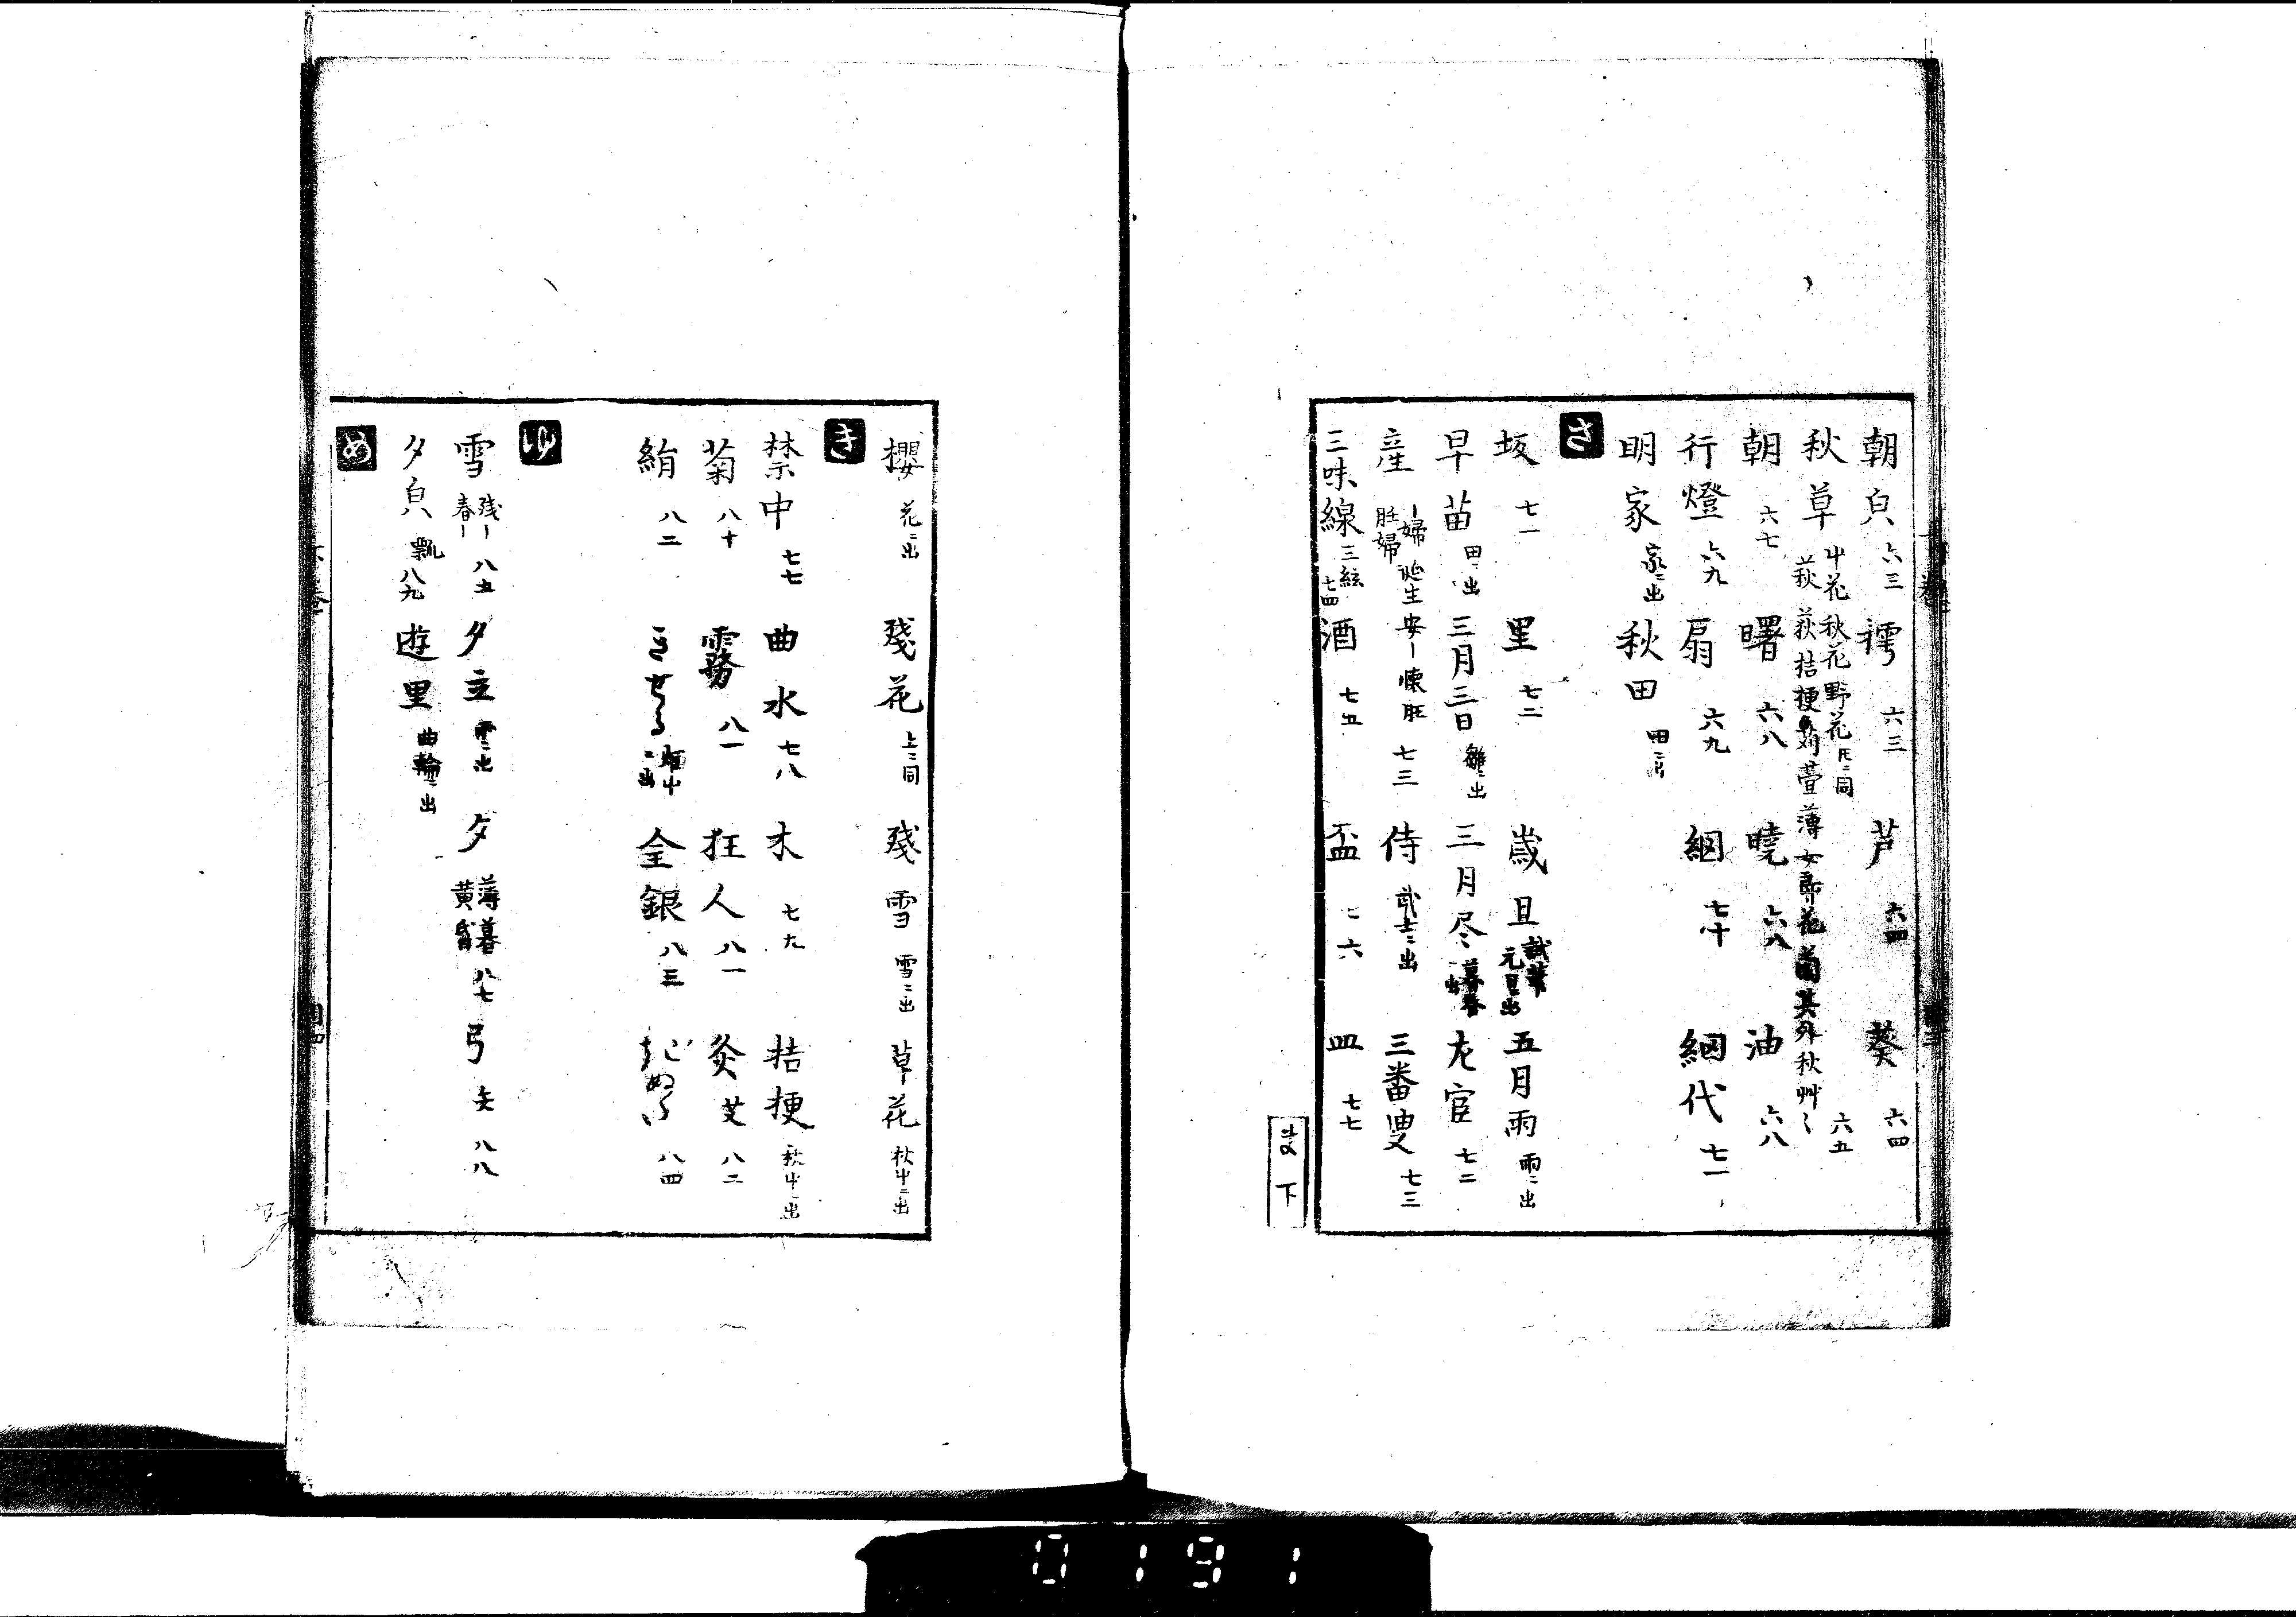 朝㒵 六三 樗 六三 芦 六四 葵 六四
秋草 屮花 秋花 野花 尾ニ同 萩 荻 桔梗 刈萱 薄 女郎花 蘭 其外秋艸〻 六五
朝 六七 曙 六八 曉 六八 油 六八
行燈 六九 扇 六九 網 七十 網代 七一
明家 家ニ出 秋田 田ニ出
さ
坂 七一 里 七二 歳旦 試筆 元日ニ出 五月雨 雨ニ出
早苗 田ニ出 三月三日 雛ニ出 三月尽 暮春ニ出 左官 七二
産 ー婦 妊婦 誕生 安ー 懐妊 七三 侍 武士ニ出 三番叟 七三
三味線 三絃 七四 酒 七五 盃 七六 皿 七七
下
櫻 花ニ出 残花 上ニ同 残雪 雪ニ出 草花 秋屮ニ出
き
禁中 七七 曲水 七八 木 七九 桔梗 秋屮ニ出
菊 八十 霧 八一 狂人 八一 灸 艾 八二
絹 八二 きせる ニ出 金銀 八三 きぬ〳〵 八四
ゆ
雪 残ー 春ー 八五 夕立 雨ニ出 夕 薄暮 黄昏 八七 弓 矢 八八
夕㒵 瓢 八九 遊里 曲輪ニ出
め
0191